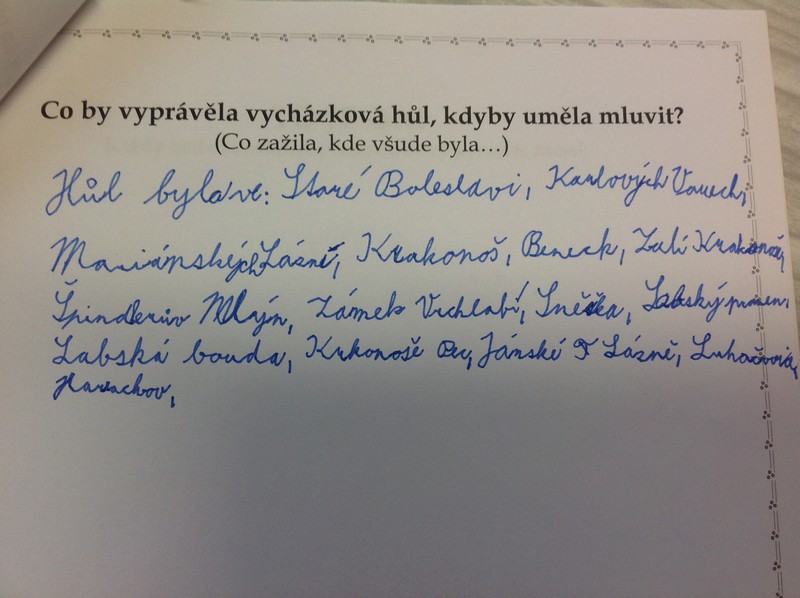 Co by vyprávěla vycházková hůl, kdyby uměla mluvit?
(Co zažila, kde všude byla…)
Hůl byla ve: Staré Boleslavi, Karlových Varech,
Mariánských Lázně, Krakonoš, Beneck, Krakonoše,
Špindlerův Mlajn, Zámek Vrchlabí, Sněžka, Labský pramen,
Labská bouda, Krkonoše Pec, Jánské Lázně, Luhačovice,
Harrachov,